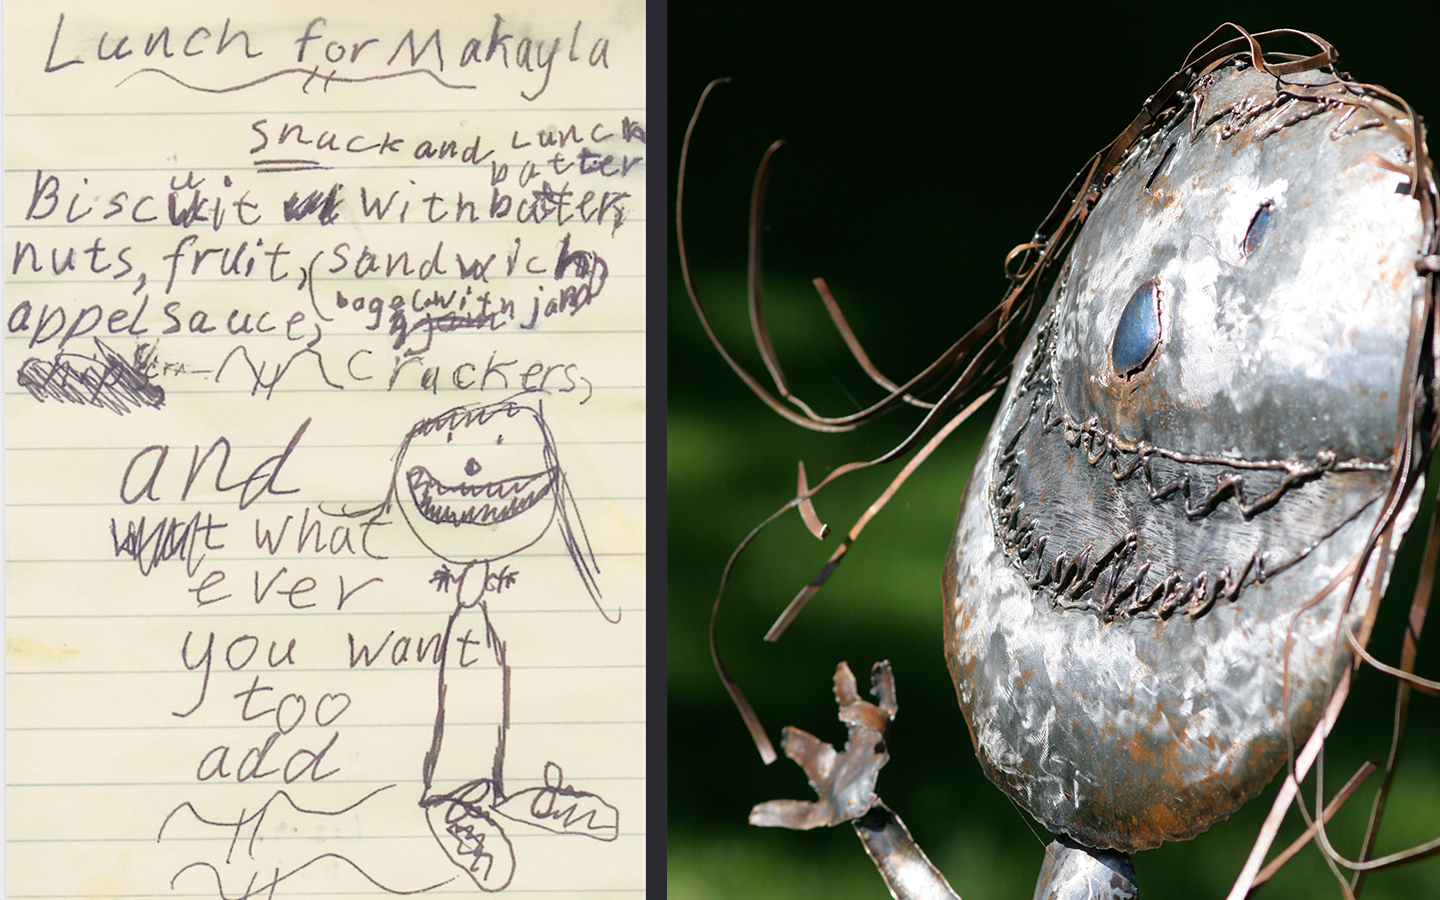 Lunch for Makayla
snack and Lunch
batter
Biscuit with butter
nuts, fruit, (sandwich)
bagel with jam
appelsauce,
crackers,
and
what
ever
you want
too
add